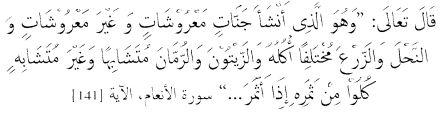 قَالَ تَعَالَى: "وَهُوَ الَّذِى أَنْشَأَ جَنَّاتٍ مَعْرُوشَاتٍ وَ غَيْرَ مَعْرُوشَاتٍ وَ
النَّخْلَ وَالزَّرْعَ مُخْتَلِفًا أُكُلُهُ وَالزَّيْتُونَ وَالرُّمَّانَ مُتَشَابِهًا وَغَيْرَ مُتَشَابِهٍ
كُلُوا مِنْ ثَمَرِهِ إِذَا أَثْمَرَ..." سورة الأنعام، الآية [141]